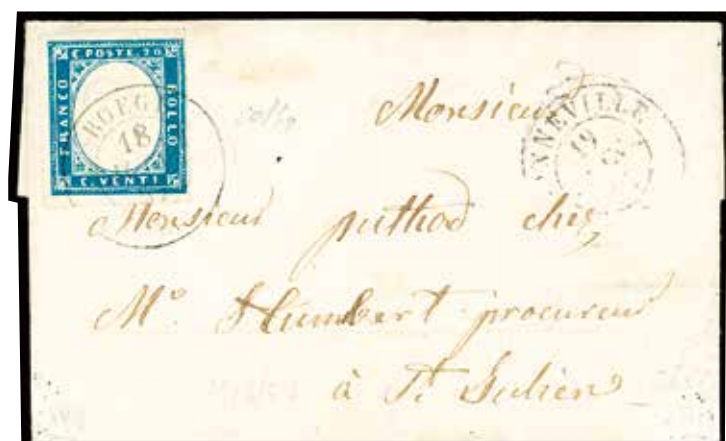 C. POSTE. 20
FRANCO
BOLLO
C. VENTI
BOEG
18
Monsieur
NNEVILLE
19
Monsieur puthod chez
Mr. Humbert procureur
à St Julien